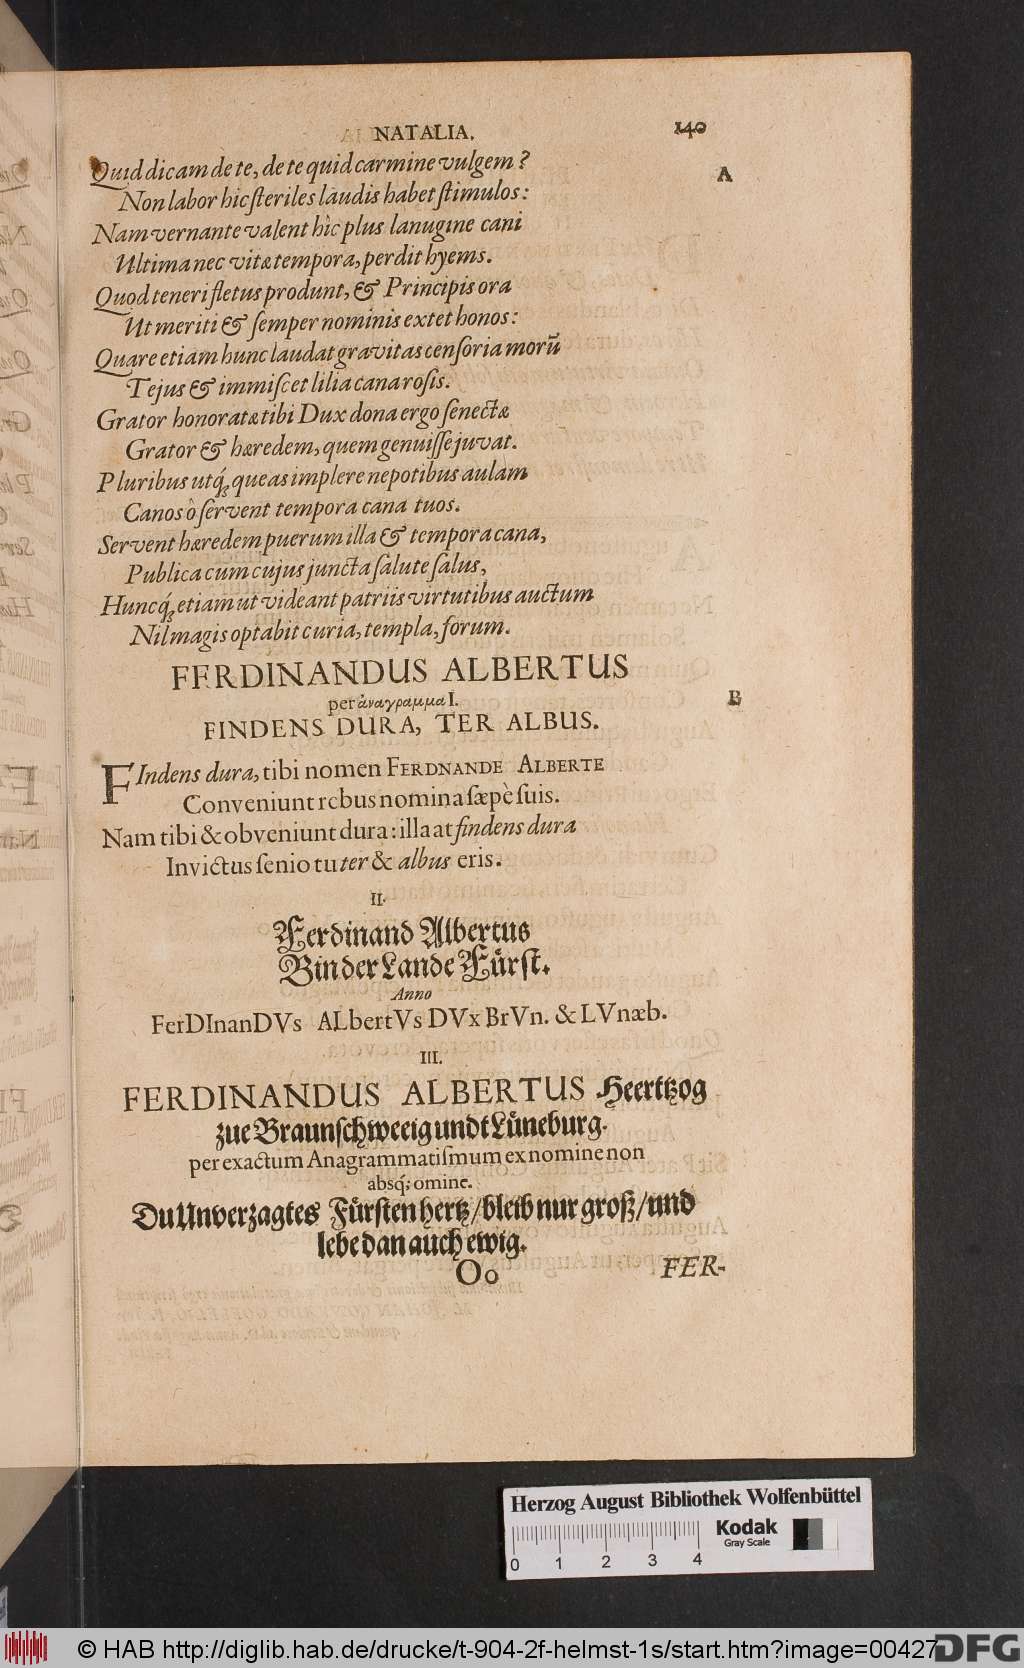 NATALIA. 140
Quid dicam de te, de te quid carmine vulgem?
A
Non labor hic steriles laudis habet stimulos:
Nam vernante valent hìc plus lanugine cani
Ultima nec vitæ tempora, perdit hyems.
Quod teneri fletus produnt, & Principis ora
Ut meriti & semper nominis extet honos:
Quare etiam hunc laudat gravitas censoria morũ
Tejus & immiscet lilia cana rosis.
Grator honoratæ tibi Dux dona ergo senectæ
Grator & hæredem, quem genuisse juvat.
Pluribus utq́; queas implere nepotibus aulam
Canos ô servent tempora cana tuos.
Servent hæredem puerum illa & tempora cana,
Publica cum cujus juncta salute salus,
Huncq́; etiam ut videant patriis virtutibus auctum
Nil magis optabit curia, templa, forum.
FERDINANDUS ALBERTUS
per ἀναγραμμα I.
B
FINDENS DURA, TER ALBUS.
FIndens dura, tibi nomen FERDNANDE ALBERTE
Conveniunt rebus nomina sæpè suis.
Nam tibi & obveniunt dura: illa at findens dura
Invictus senio tu ter & albus eris.
II.
Ferdinand Albertus
Bin der Lande Fürst.
Anno
FerDInanDVs ALbertVs DVx BrVn. & LVnæb.
III.
FERDINANDUS ALBERTUS Heertzog
zue Braunschweeig undt Lüneburg.
per exactum Anagrammatismum ex nomine non
absq́; omine.
Du Unverzagtes Fürsten hertz/ bleib nur groß/ und
lebe dan auch ewig.
Oo FER-
Herzog August Bibliothek Wolfenbüttel
Kodak
Gray Scale
0 1 2 3 4
© HAB http://diglib.hab.de/drucke/t-904-2f-helmst-1s/start.htm?image=00427
DFG